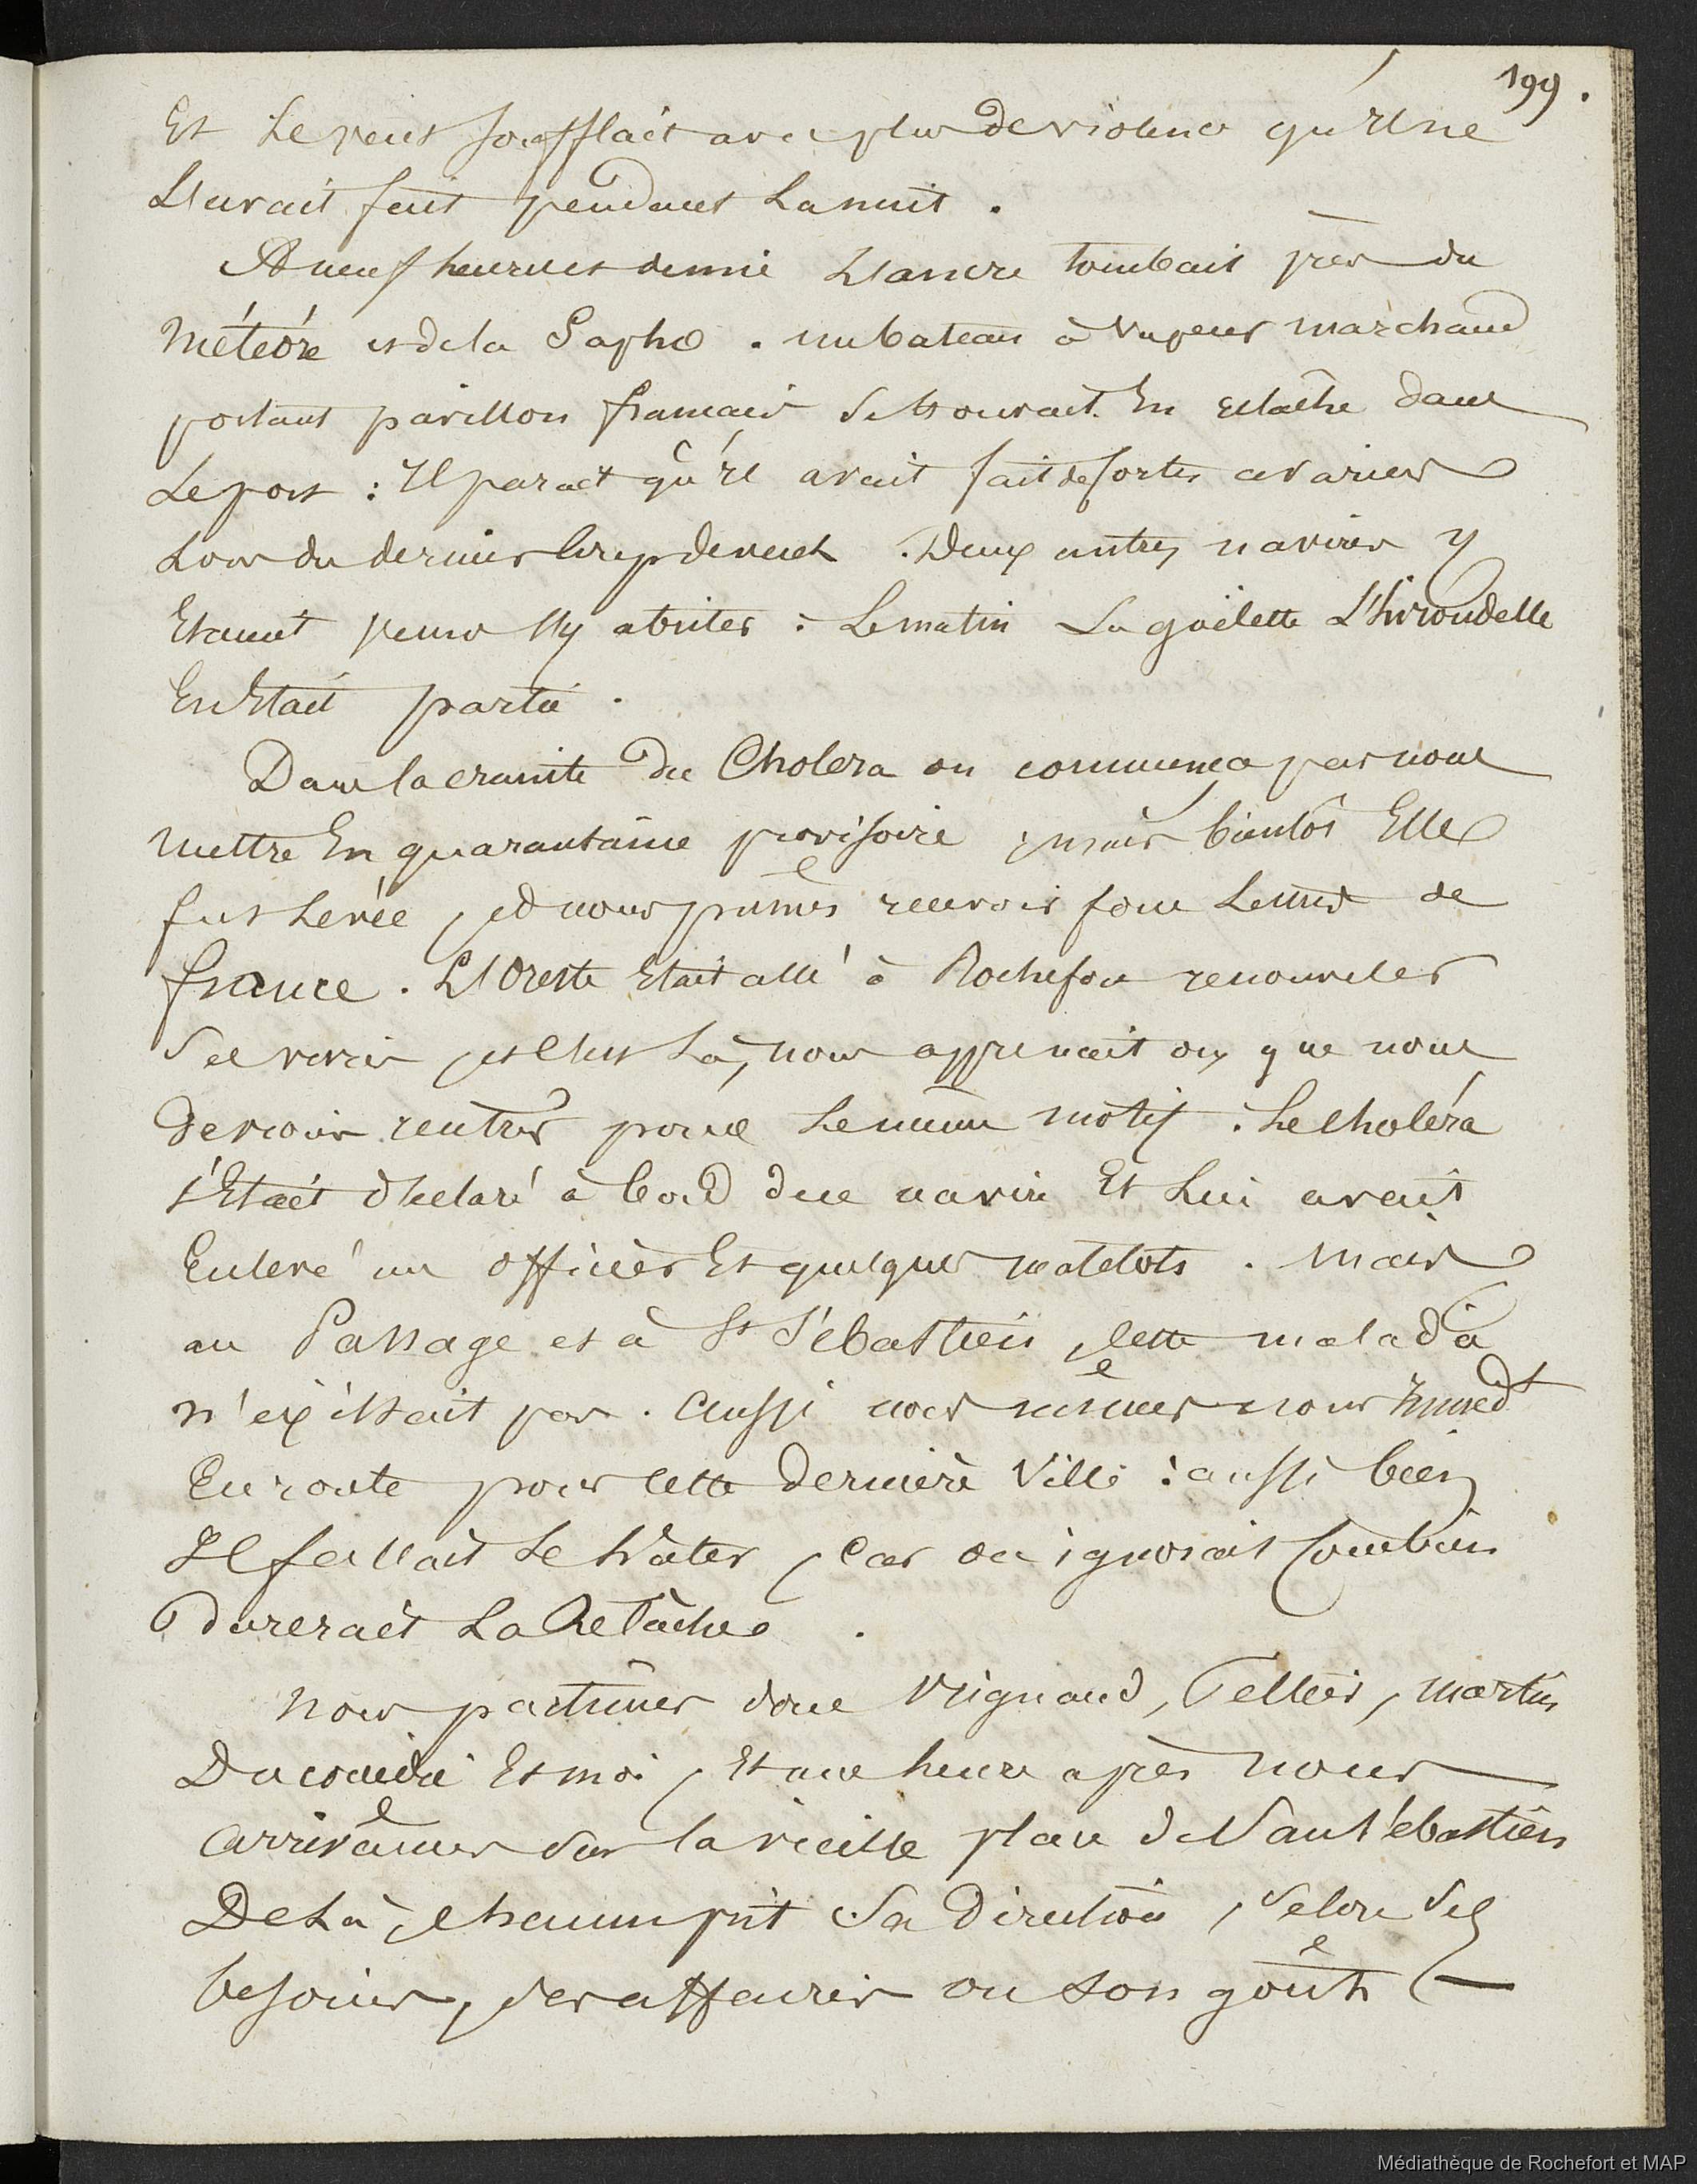 199.
Et le vent soufflait avec plus de violence qu'il ne
L'avait fait pendant La nuit.
A neuf heures et demie L'ancre tombait près du
Météore et de la Sapho. un bateau à vapeur marchand
portant pavillon français se trouvait En relâche dans
Le port : Il parait qu'il avait fait de fortes avaries
Lors du dernier coup de vent. Deux autres navires y
Etaient pour s'y abriter : Le matin La goëlette L'hirondelle
En Etait partie.
Dans la crainte du Cholera on commença par nous
mettre En quarantaine provisoire, mais bientôt Elle
fut Levée, et nous pûmes recevoir sous Lemed de
france. L'Oreste Etait allé à Rochefort renouveler
Ses vivres, et c'est Là, nous apprenait on, que nous
devions rentrer pour Le même motif : Le choléra
s'Etait déclaré à bord du navire Et Lui avait
Enlevé un officier Et quelques matelots. mais
au Passage et à St Sébastien, cette maladie
n'existait pas. Aussi nous mîmes nous immedt
En route pour cette dernière Ville : aussi bien
Il fallait se hâter, Car on ignorait Combien
durerait La Relâche.
Nous partîmes donc Vrignaud, Tellier, Martin
Ducoudré Et moi, Et une heure après nous
arrivâmes sur la vieille place de San Sébastien
De Là, chacun prit Sa Direction, Selon Ses
besoins, ses affaires ou son goût